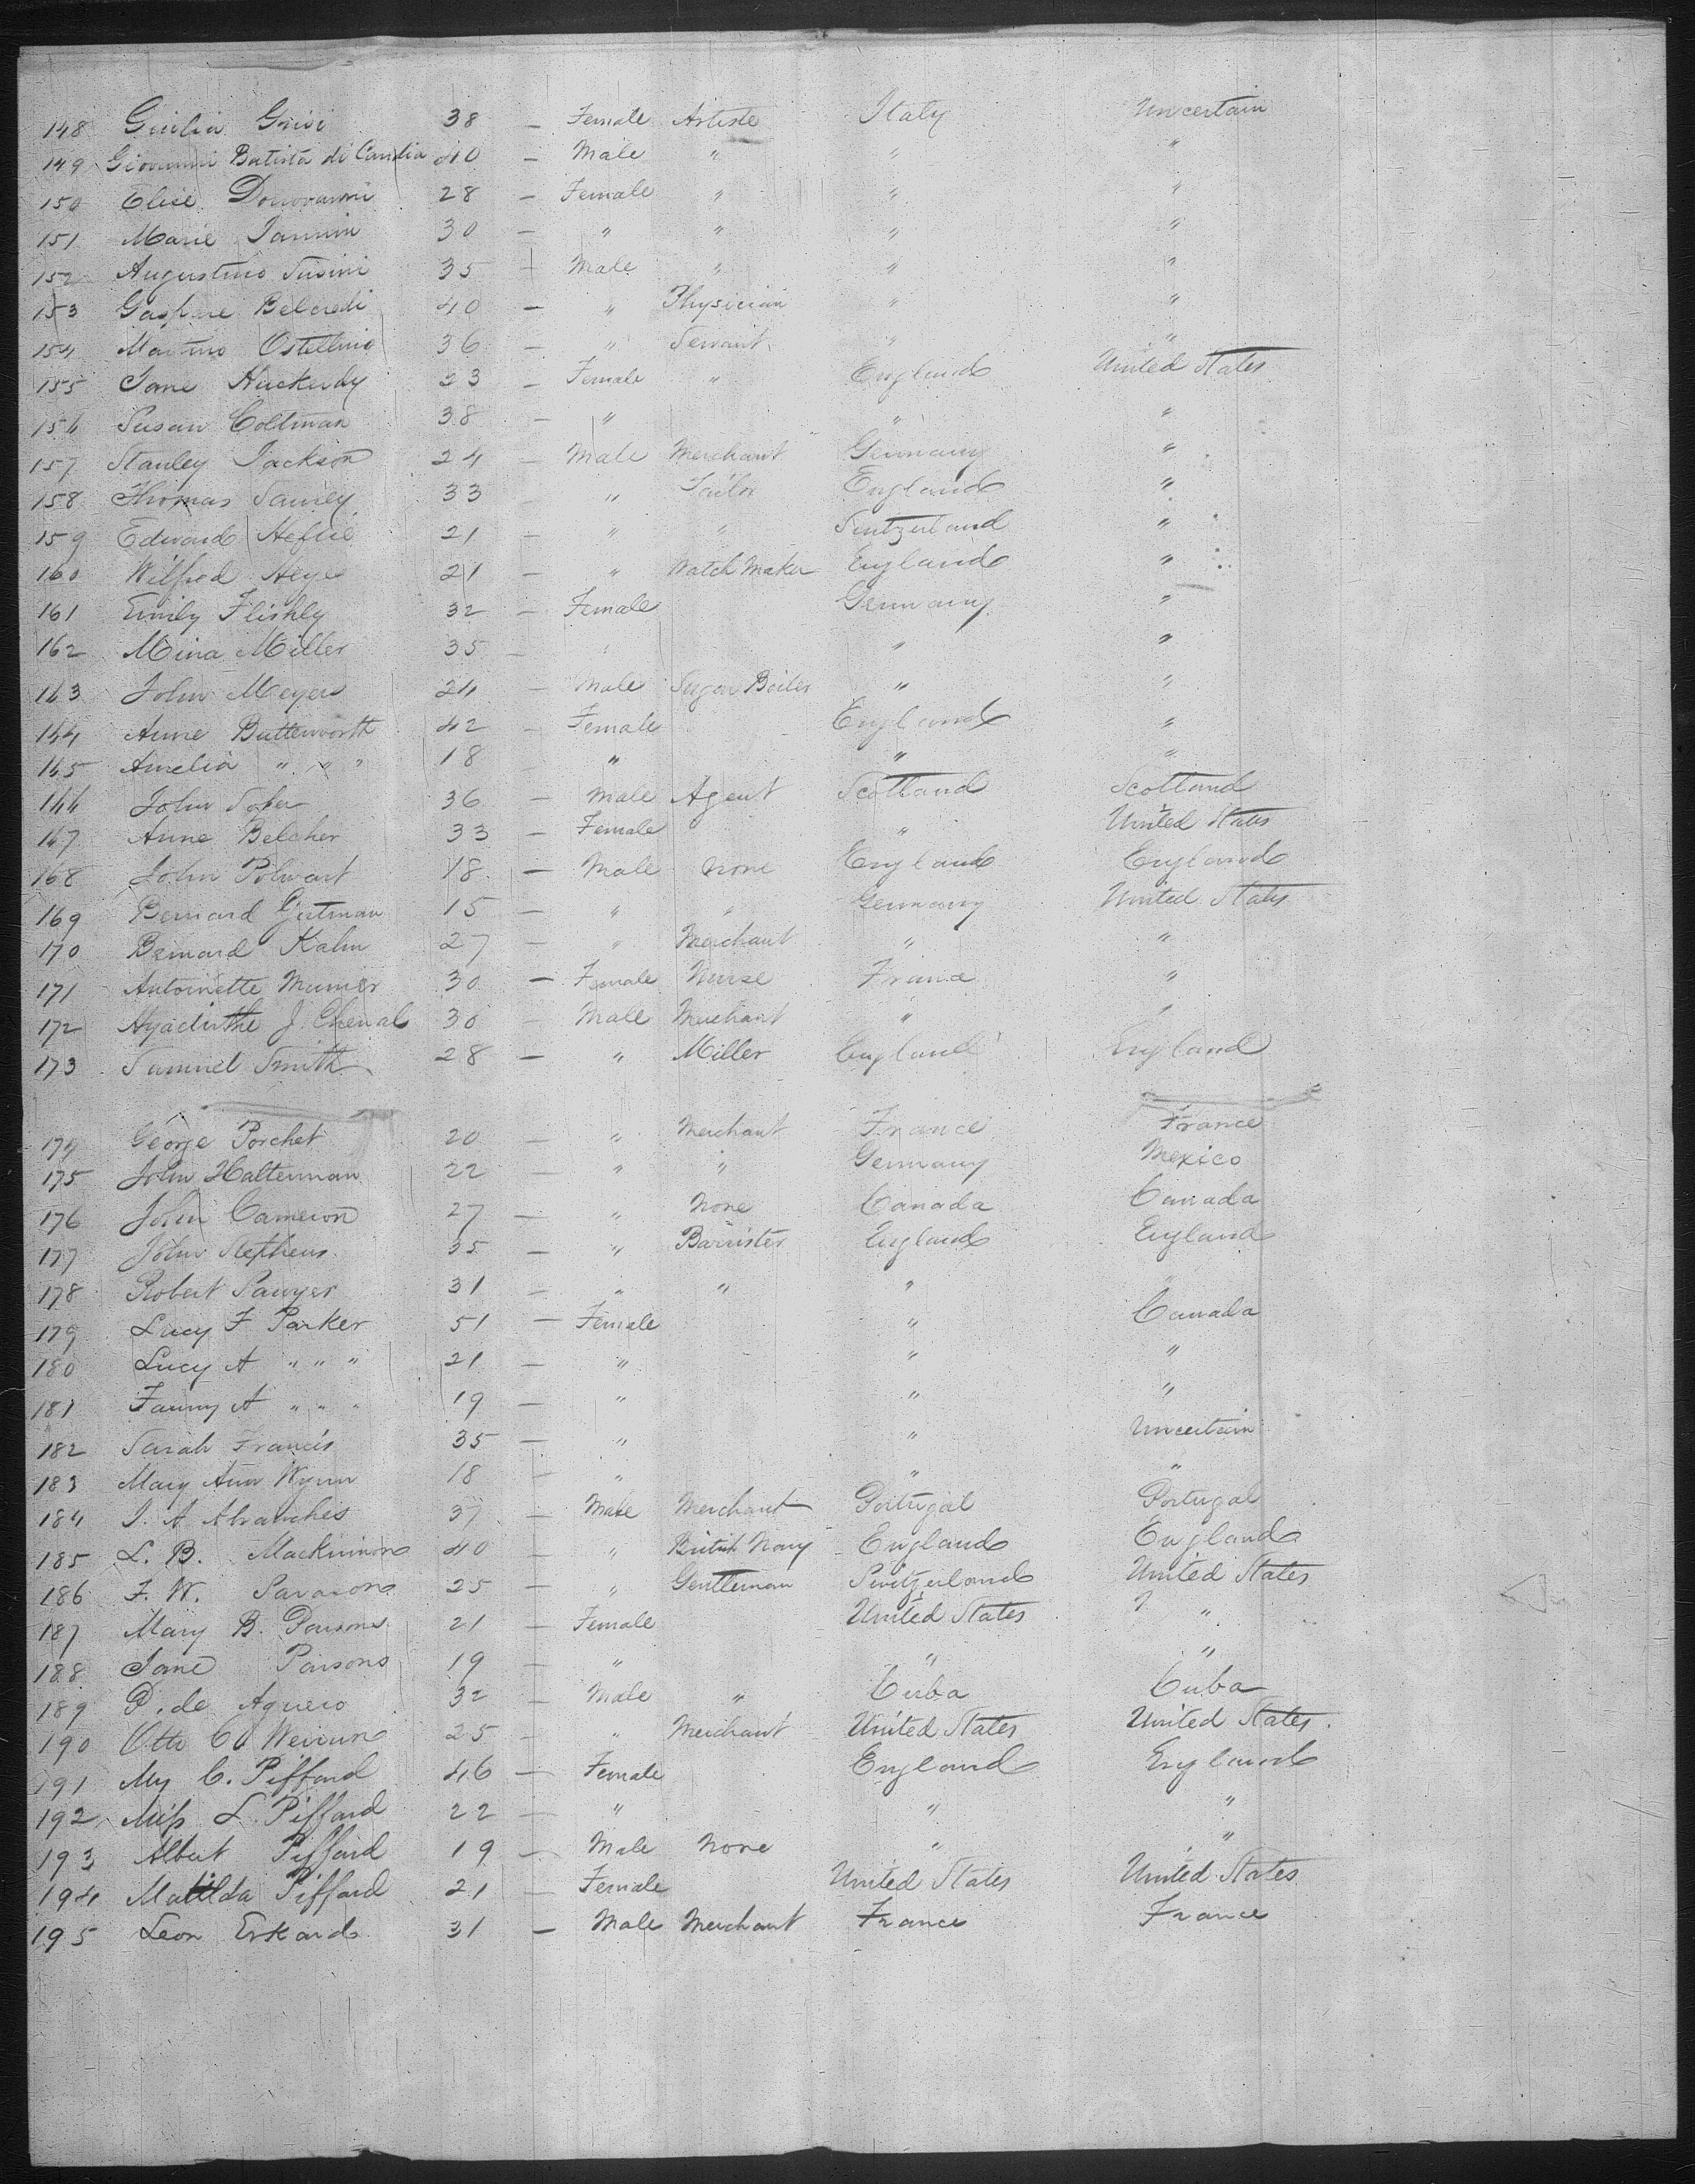 148 Giulia Grisi 38 — Female Artiste Italy Uncertain
149 Giovanni Batista di Candia 40 — Male " " "
150 Elise 28 — Female " " "
151 Marie 30 — " " " "
152 Augustino Susini 35 — Male " " "
153 Gaspare Belcredi 40 — " Physician " "
154 Martino Ostellino 36 — " Servant " "
155 Jane 23 — Female " England United States
156 Susan Coltman 38 — " " "
157 Stanley Jackson 24 — Male Merchant Germany "
158 Thomas 33 " Tailor England "
159 Edward 21 — " " Switzerland "
160 Wilfred 21 — " Watch Maker England "
161 Emily 32 — Female Germany "
162 Mina Miller 35 — " " "
163 John Meyers 24 — Male Sugar Boiler " "
164 Anne Butterworth 42 — Female England "
165 Amelia " " " 18 — " " "
166 John 36 — Male Agent Scotland Scotland
167 Anne Belcher 33 — Female " United States
168 John Polwart 18 — Male None England England
169 Bernard Gutman 15 — " " Germany United States
170 Bernard Kahn 27 — " Merchant " "
171 Antoinette 30 — Female Nurse France "
172 Hyacinthe J. Cheval 30 — Male Merchant " "
173 Samuel Smith 28 — " Miller England England
174 George Porchet 20 — " Merchant France France
175 John Halterman 22 — " " Germany Mexico
176 John Cameron 27 — " None Canada Canada
177 John Stephens 35 — " Barrister England England
178 Robert Sawyer 31 — " " " "
179 Lucy F Parker 51 — Female " Canada
180 Lucy A " " " 21 — " " "
181 Fanny A " " " 19 — " " "
182 Sarah Francis 35 — " " Uncertain
183 Mary Ann Wynn 18 — " " "
184 J. A Abranches 37 — Male Merchant Portugal Portugal
185 L. B. Mackinnon 40 — " British Navy England England
186 F. W. 25 — " Gentleman Switzerland United States
187 Mary B. Parsons 21 — Female United States "
188 Jane Parsons 19 — " " "
189 P. de Aguero 32 — Male " Cuba Cuba
190 Otto 25 — " Merchant United States United States
191 C. Piffard 46 — Female England England
192 Miss L. Piffard 22 — " " "
193 Albert Piffard 19 — Male None " "
194 Matilda Piffard 21 — Female United States United States
195 Leon 31 — Male Merchant France France